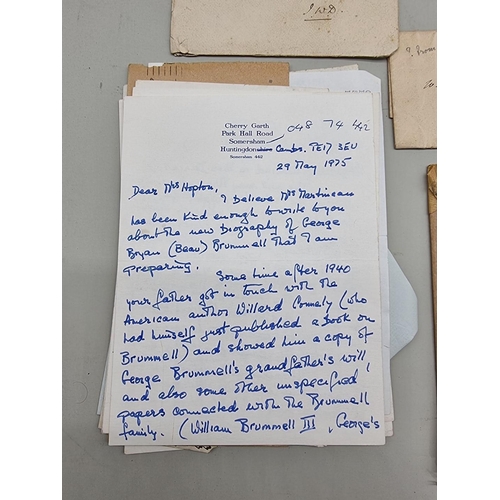 J.W.D.
? from
to
Cherry Garth
Park Hall Road
Somersham
Huntingdonshire Cambs. PE17 3EU
Somersham 442
048 74 442
29 May 1975
Dear Mrs Hopton,
I believe Mrs Martineau
has been kind enough to write to you
about the new biography of George
Bryan (Beau) Brummell that I am
preparing.
Some time after 1940
your father got in touch with the
American author Willard Connely (who
had himself just published a book on
Brummell) and showed him a copy of
George Brummell's grandfather's will
and also some other unspecified
papers connected with the Brummell
family. (William Brummell III, George's